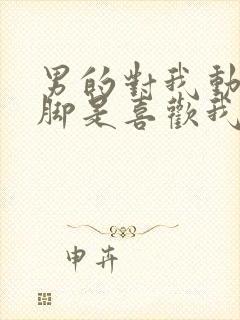 男的對我動
腳是喜歡我
申卉